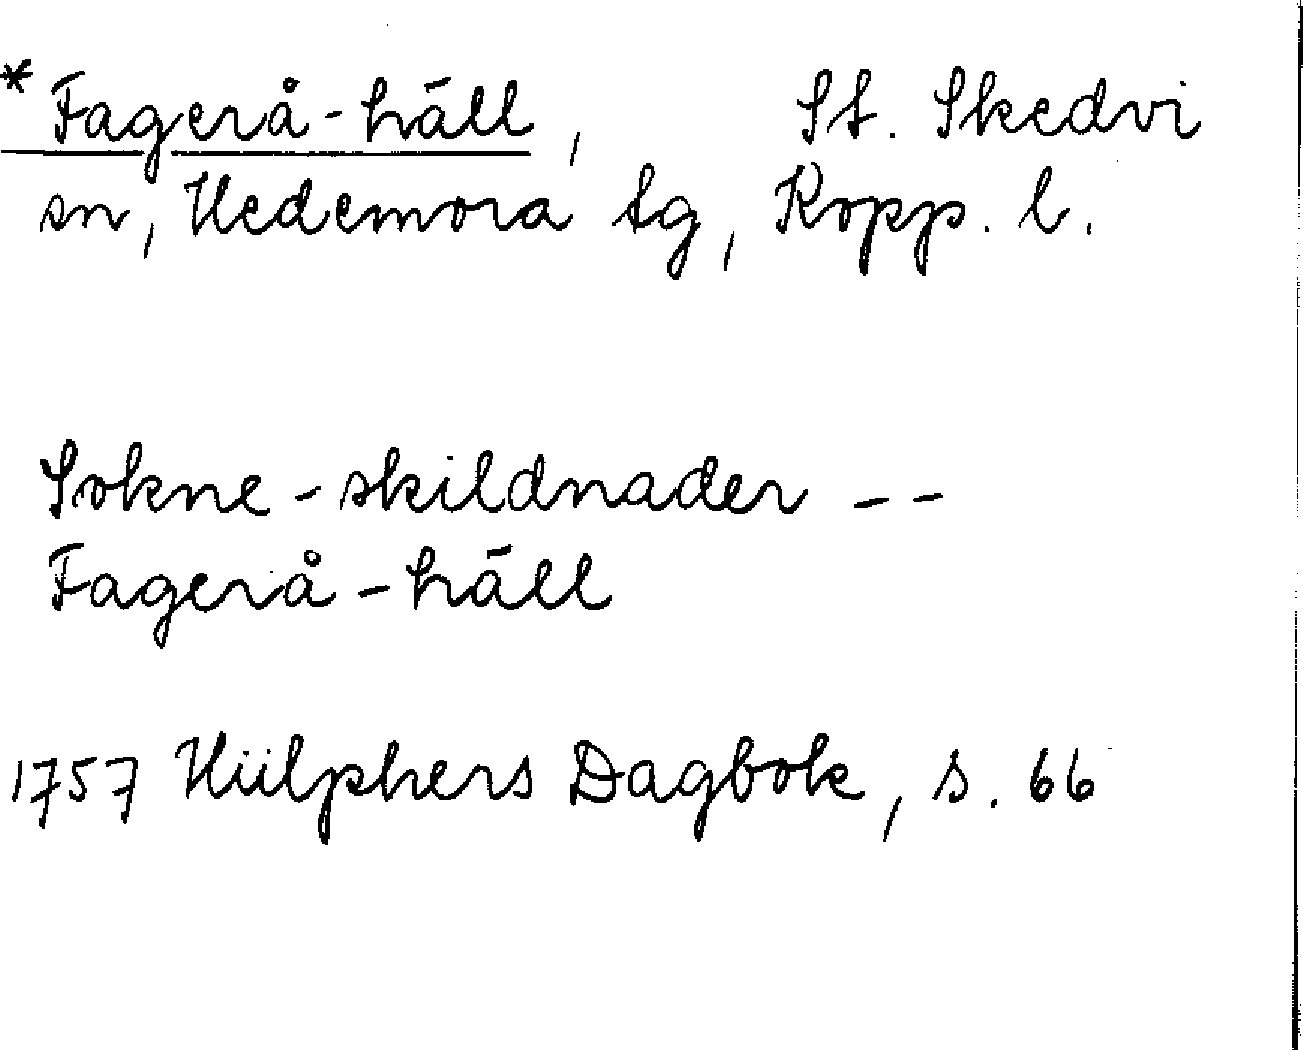 *Fagerå-häll, St. Skedvi
sn, Hedemora tg, Kopp. l.
Sokne-skildnader --
Fagerå-häll
1757 Hülphers Dagbok, s. 66